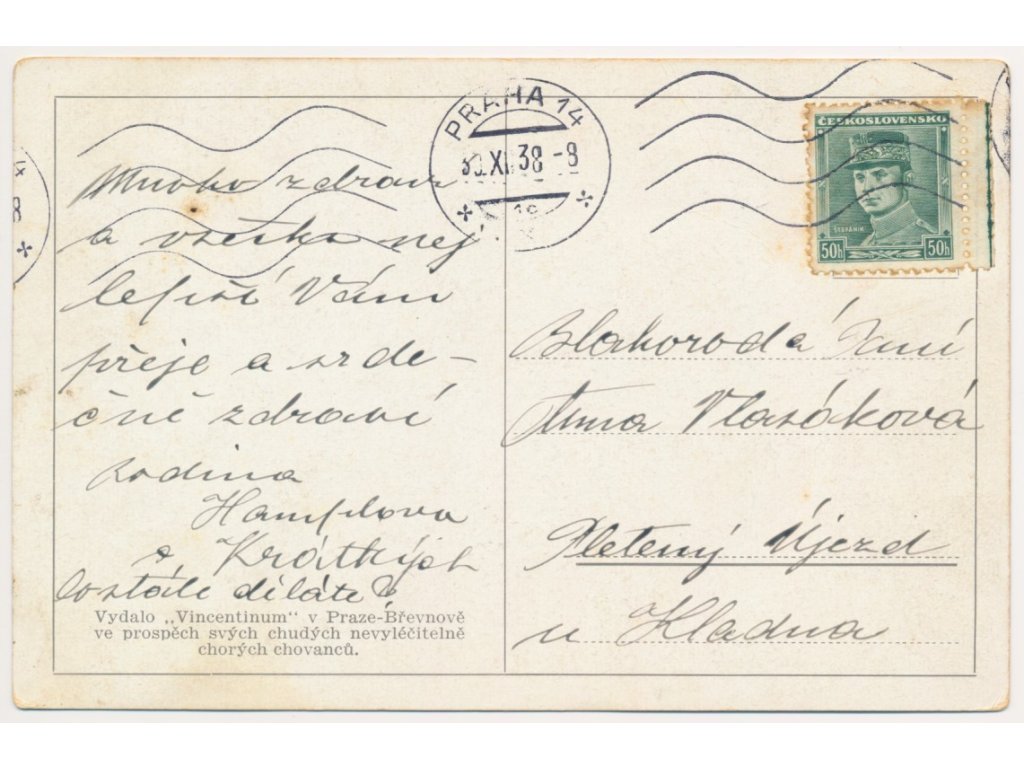 PRAHA 14
30.XI.38 -8
ČESKOSLOVENSKO
ŠTEFÁNIK
50h 50h
Mnoho zdraví
a všecko nej
lepší Vám
přeje a srde-
čně zdraví
rodina
Hamplova
a Krátkých
co stále děláte?
Vydalo „Vincentinum“ v Praze-Břevnově
ve prospěch svých chudých nevyléčitelně
chorých chovanců.
Blahorodá Paní
Anna Vlasáková
Pletený Újezd
u Kladna